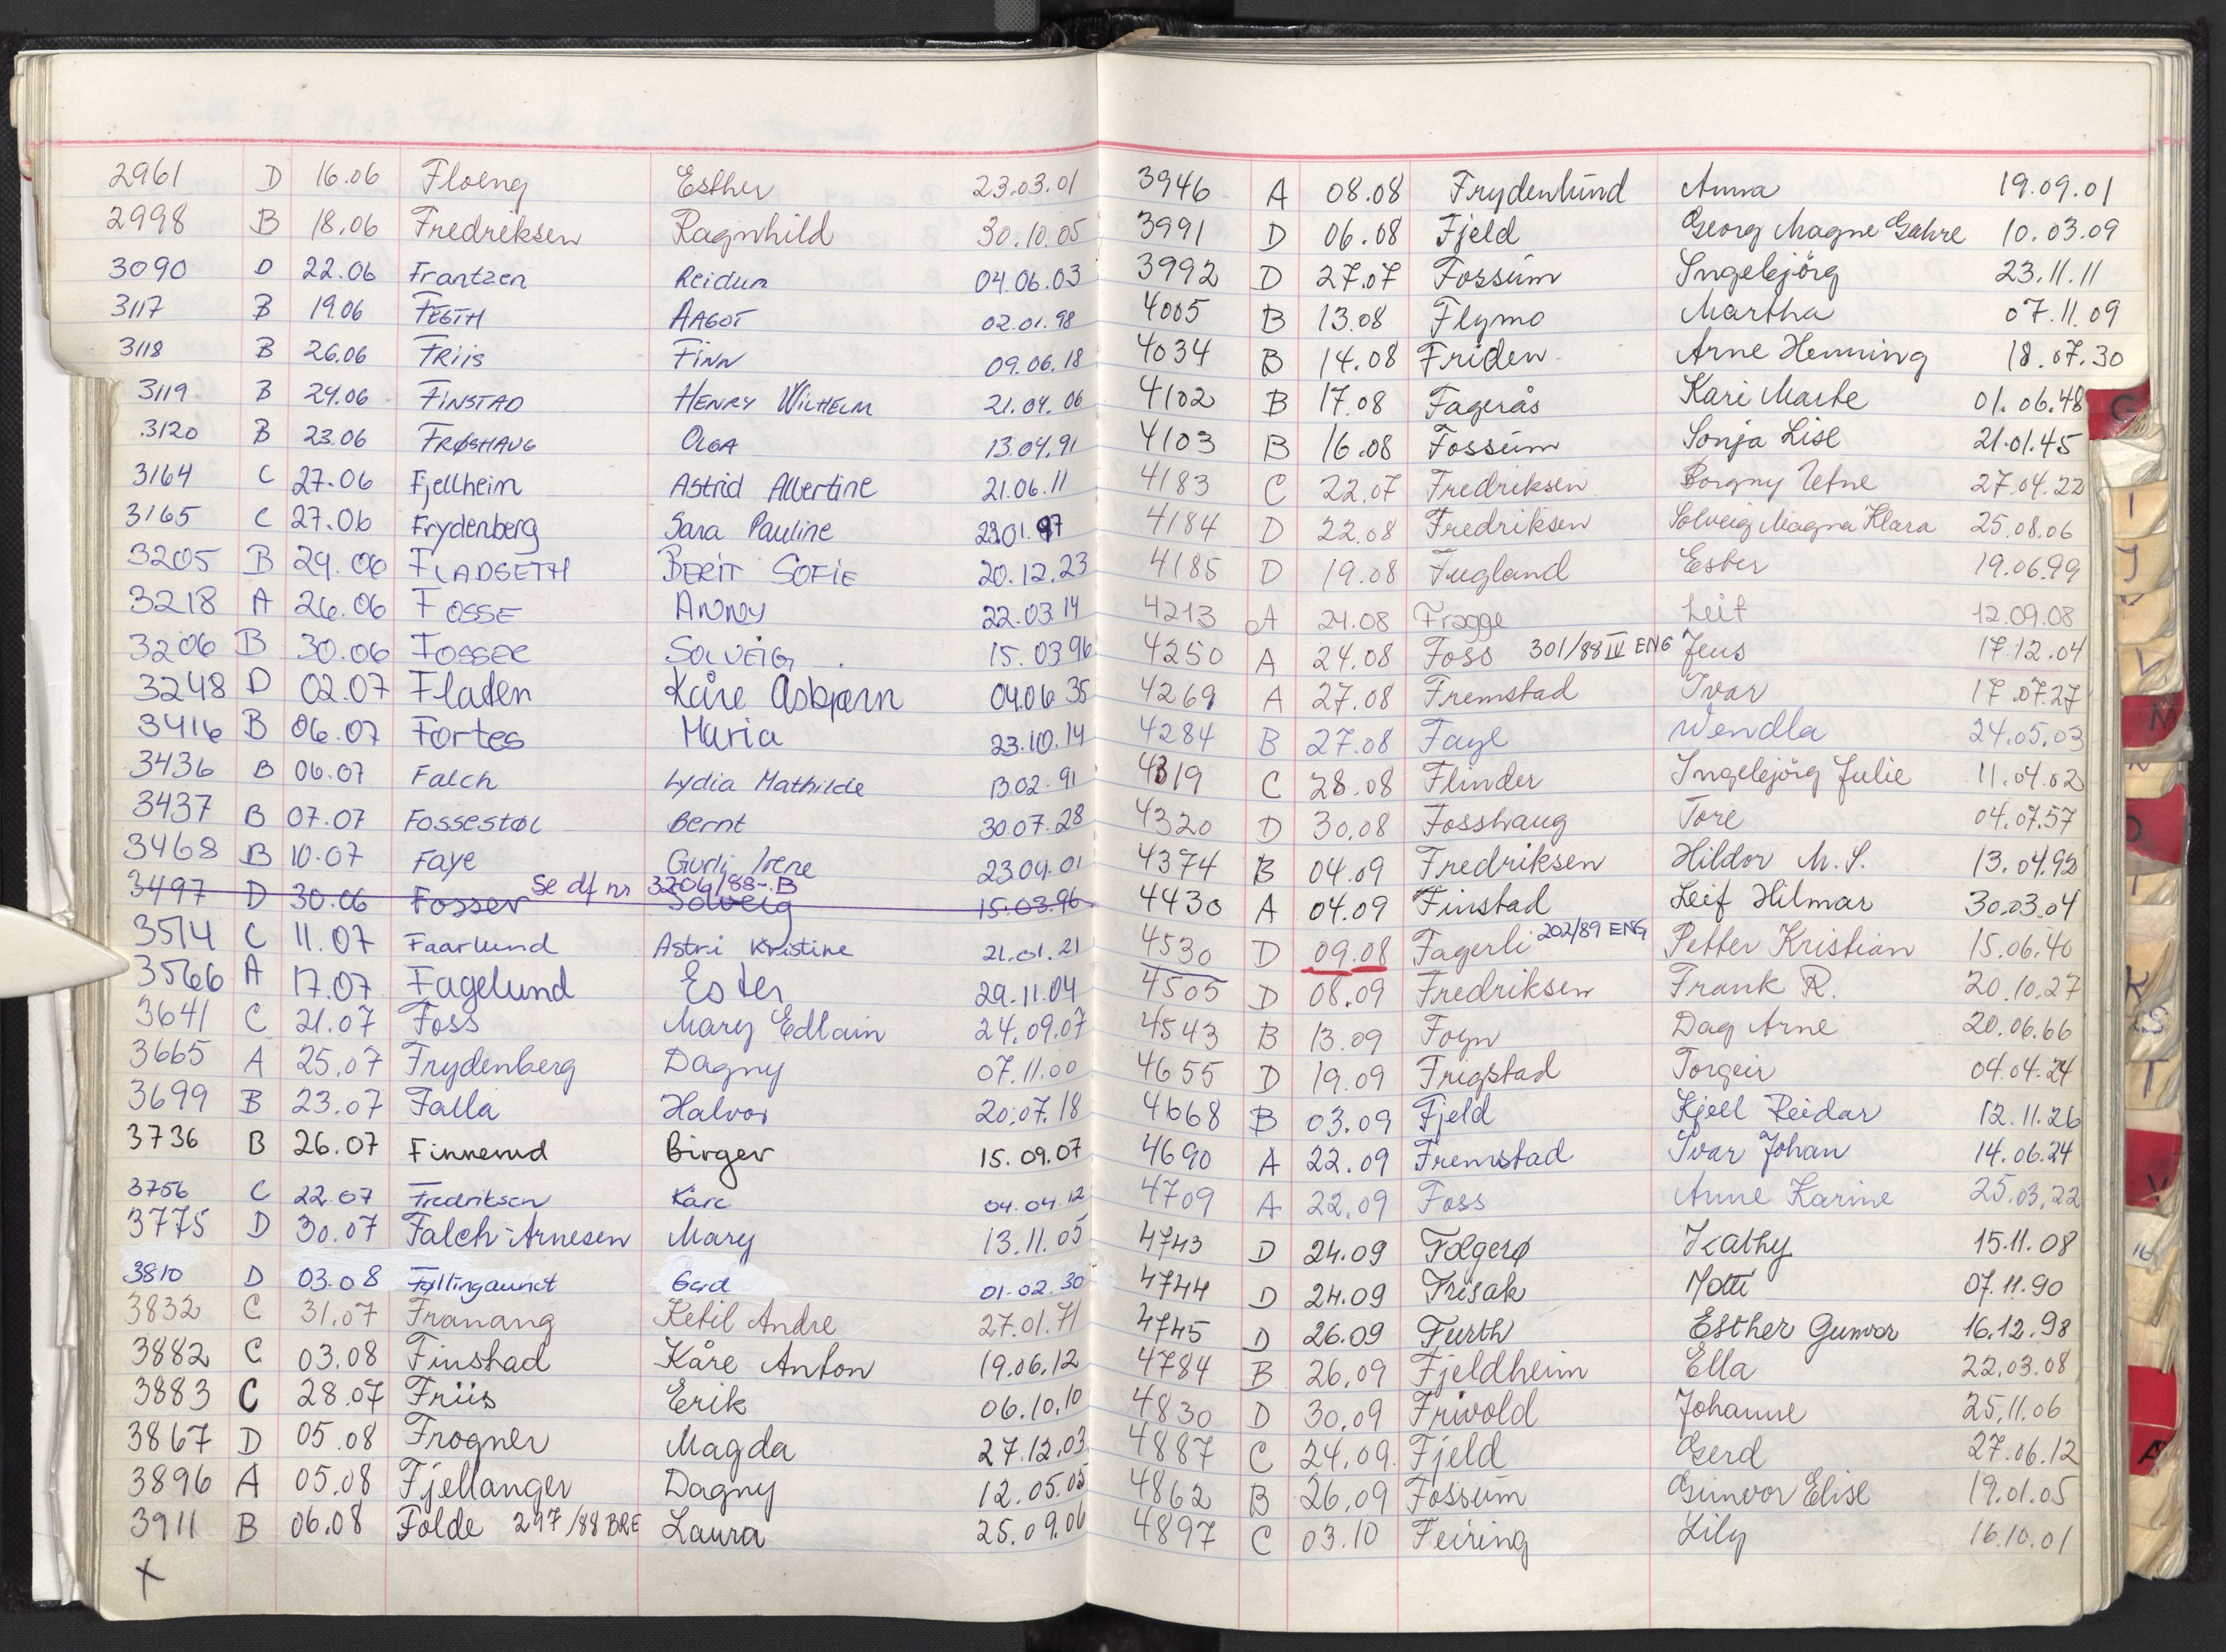 2961 D 16.06 Floeng Esther 23.03.01
2998 B 18.06 Fredriksen Ragnhild 30.10.05
3090 D 22.06 Frantzen Reidun 04.06.03
3117 B 19.06 FEGTH AAGOT 02.01.98
3118 B 26.06 FRIIS FINN 09.06.18
3119 B 24.06 FINSTAD HENRY WILHELM 21.04.06
3120 B 23.06 FRØSHAUG OLGA 13.04.91
3164 C 27.06 Fjellheim Astrid Albertine 21.06.11
3165 C 27.06 Frydenberg Sara Pauline 23.01.97
3205 B 29.06 FLADSETH BERIT SOFIE 20.12.23
3218 A 26.06 FOSSE ANNY 22.03.14
3206 B 30.06 FOSSER SOLVEIG 15.03.96
3248 D 02.07 Fladen Kåre Asbjørn 04.06.35
3416 B 06.07 Fortes Maria 23.10.14
3436 B 06.07 Falch Lydia Mathilde 13.02.91
3437 B 07.07 FOSSESTØL Bernt 30.07.28
3468 B 10.07 Faye Gurli Irene 23.04.01
Se df nr 3206/88-B
3497 D 30.06 Fosser Solveig 15.03.96
3514 C 11.07 Faarlund Astri Kristine 21.01.21
3566 A 17.07 Fagelund Ester 29.11.04
3641 C 21.07 Foss Mary Edlain 24.09.07
3665 A 25.07 Frydenberg Dagny 07.11.00
3699 B 23.07 Falla Halvor 20.07.18
3736 B 26.07 Finnerud Birger 15.09.07
3756 C 22.07 Fredriksen Kåre 04.04.12
3775 D 30.07 Falch-Arnesen Mary 13.11.05
3810 D 03.08 Gerd 01.02.30
3832 C 31.07 Franang Ketil Andre 27.01.71
3882 C 03.08 Finstad Kåre Anton 19.06.12
3883 C 28.07 Friis Erik 06.10.10
3867 D 05.08 Frogner Magda 27.12.03
3896 A 05.08 Fjellanger Dagny 12.05.05
3911 B 06.08 Folde 297/88 BRE Laura 25.09.06
X
3946 A 08.08 Frydenlund Anna 19.09.01
3991 D 06.08 Fjeld Georg Magne Gahre 10.03.09
3992 D 27.07 Fossum Ingebjörg 23.11.11
4005 B 13.08 Flymo Martha 07.11.09
4034 B 14.08 Friden Arne Henning 18.07.30
4102 B 17.08 Fagerås Kari Marte 01.06.48
4103 B 16.08 Fossum Sonja Lise 21.01.45
4183 C 22.07 Fredriksen Borgny Utne 27.04.22
4184 D 22.08 Fredriksen Solveig Magna Klara 25.08.06
4185 D 19.08 Fugland Ester 19.06.99
4213 A 24.08 Frogge Leif 12.09.08
4250 A 24.08 Foss 301/88 IV ENG Jens 17.12.04
4269 A 27.08 Fremstad Ivar 17.07.27
4284 B 27.08 Faye Wendla 24.05.03
4319 C 28.08 Flinder Ingebjörg Julie 11.04.02
4320 D 30.08 Fosshaug Tore 04.07.57
4374 B 04.09 Fredriksen Hildor M.S. 13.04.92
4430 A 04.09 Finstad Leif Hilmar 30.03.04
4530 D 09.08 Fagerli 202/89 ENG Petter Kristian 15.06.40
4505 D 08.09 Fredriksen Frank R. 20.10.27
4543 B 13.09 Foyn Dag Arne 20.06.66
4655 D 19.09 Frigstad Torgeir 04.04.24
4668 B 03.09 Fjeld Kjell Reidar 12.11.26
4690 A 22.09 Fremstad Ivar Johan 14.06.24
4709 A 22.09 Foss Anne Karine 25.03.22
4743 D 24.09 Folgerø Kathy 15.11.08
4744 D 24.09 Frisak 07.11.90
4745 D 26.09 Furth Esther Gunvor 16.12.98
4784 B 26.09 Fjeldheim Ella 22.03.08
4830 D 30.09 Frivold Johanne 25.11.06
4887 C 24.09 Fjeld Gerd 27.06.12
4862 B 26.09 Fossum Gunvor Elise 19.01.05
4897 C 03.10 Feiring Lily 16.10.01
G
I
J
M
O
K
S
T
V